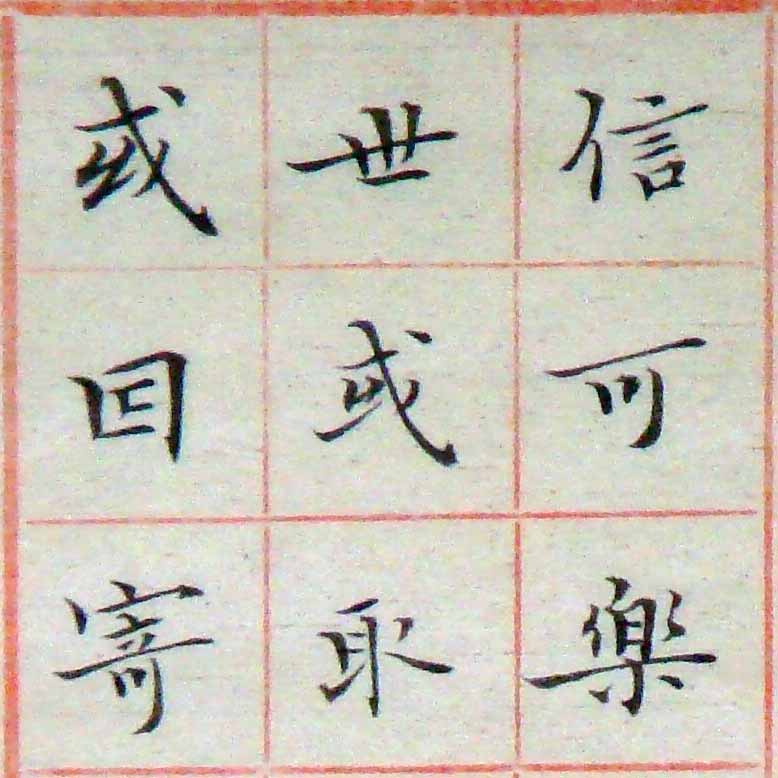 信可樂
世或取
或因寄